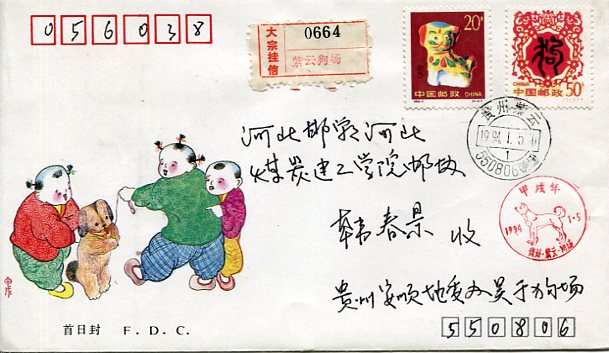 056038
大宗挂信
0664
紫云狗场
20分
中国邮政
CHINA
狗
CHINA
中国邮政
50分
贵州紫云
1994.1.5
1
550806
河北邯郸河北
煤炭建工学院邮协
韩春景 收
甲戌年
1994 1·5
贵州·紫云·狗场
贵州安顺地委办吴于狗场
甲戌
首日封 F. D. C.
550806